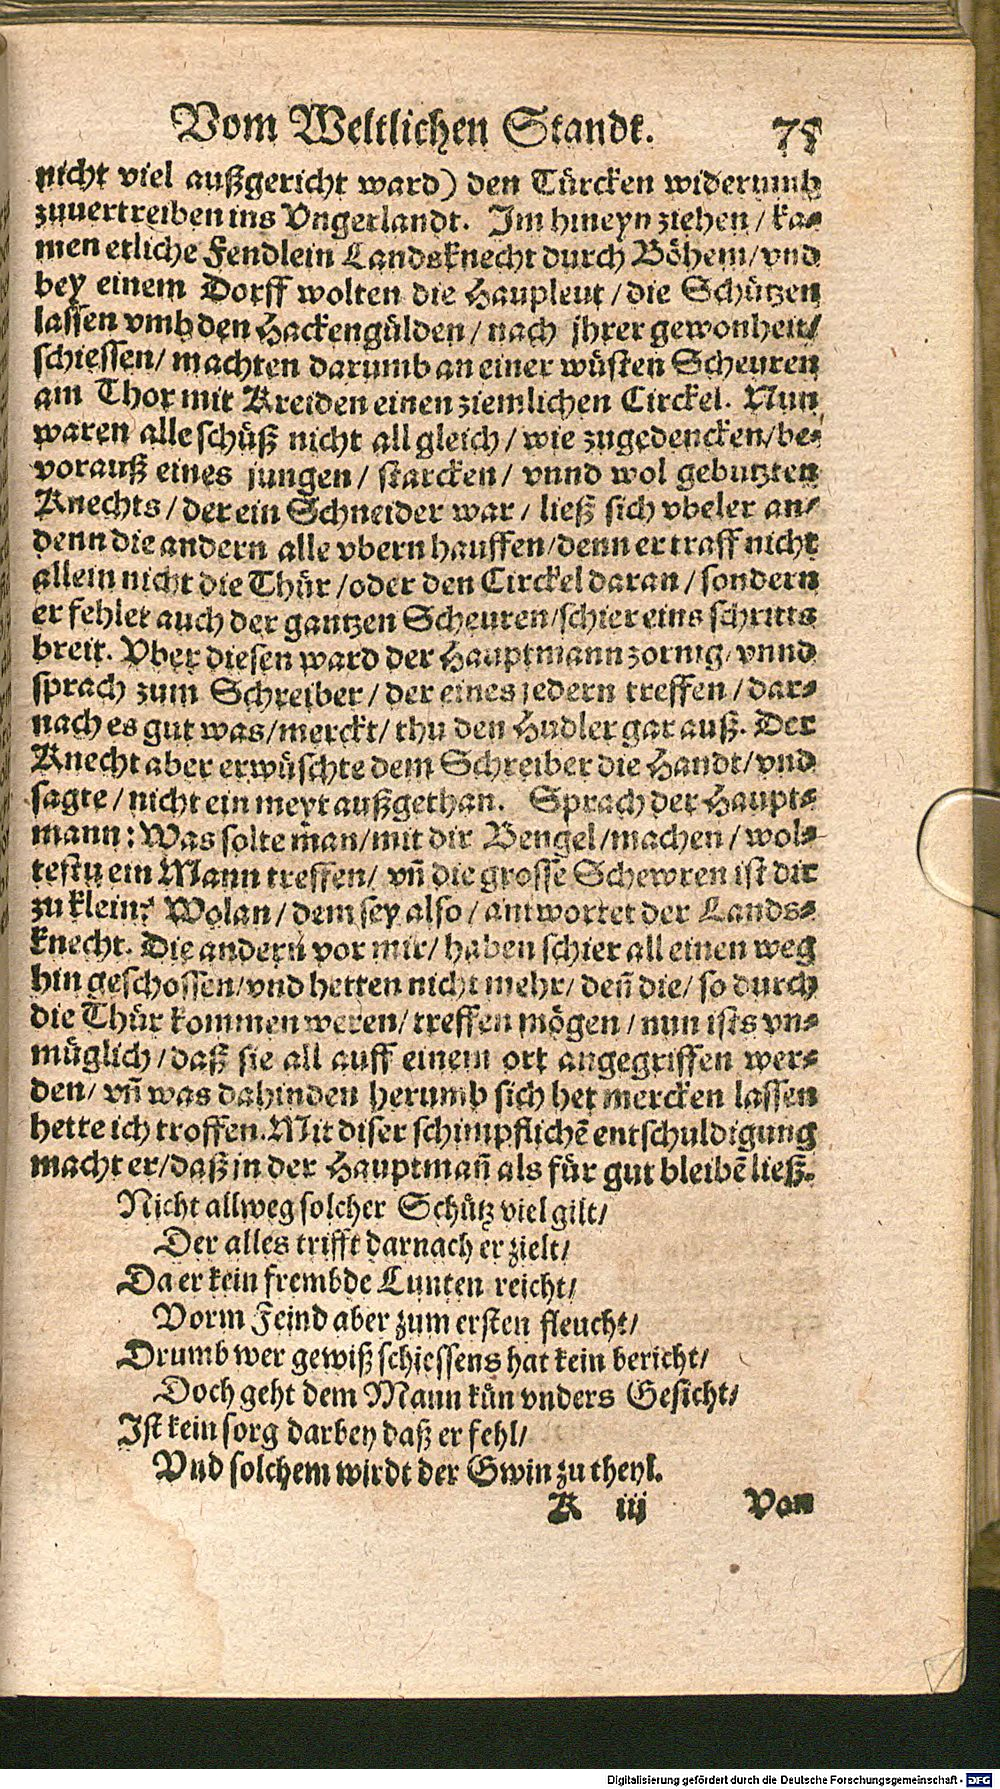 Vom Weltlichen Standt. 75
nicht viel außgericht ward) den Türcken widerumb
zuuertreiben ins Vngerlandt. Im hineyn ziehen / ka-
men etliche Fendlein Landsknecht durch Böhem / vnd
bey einem Dorff wolten die Haupleut / die Schützen
lassen vmb den Hackengülden / nach jhrer gewonheit /
schiessen / machten darumb an einer wüsten Scheuren
am Thor mit Kreiden einen ziemlichen Circkel. Nun
waren alle schüß nicht all gleich / wie zugedencken / be-
vorauß eines jungen / starcken / vnnd wol gebutzten
Knechts / der ein Schneider war / ließ sich vbeler an /
denn die andern alle vbern hauffen / denn er traff nicht
allein nicht die Thür / oder den Circkel daran / sondern
er fehlet auch der gantzen Scheuren / schier eins schritts
breit. Vber diesen ward der Hauptmann zornig / vnnd
sprach zum Schreiber / der eines jedern treffen / dar-
nach es gut was / merckt / thu den Hudler gar auß. Der
Knecht aber erwüschte dem Schreiber die Handt / vnd
sagte / nicht ein meyt außgethan. Sprach der Haupt-
mann: Was solte man / mit dir Bengel / machen / wol-
testu ein Mann treffen / vn̄ die grossē Schewren ist dir
zu klein? Wolan / dem sey also / antwortet der Lands-
knecht. Die andern vor mir / haben schier all einen weg
hin geschossen / vnd hetten nicht mehr / den̄ die / so durch
die Thür kommen weren / treffen mögen / nun ists vn-
müglich / daß sie all auff einem ort angegriffen wer-
den / vn̄ was dahinden herumb sich het mercken lassen
hette ich troffen. Mit diser schimpflichē entschuldigung
macht er / daß in der Hauptman̄ als für gut bleibē ließ.
Nicht allweg solcher Schütz viel gilt /
Der alles trifft darnach er zielt /
Da er kein frembde Lunten reicht /
Vorm Feind aber zum ersten fleucht /
Drumb wer gewiß schiessens hat kein bericht /
Doch geht dem Mann kün vnders Gesicht /
Ist kein sorg darbey daß er fehl /
Vnd solchem wirdt der Gwin zu theyl.
K iij Von
Digitalisierung gefördert durch die Deutsche Forschungsgemeinschaft - DFG